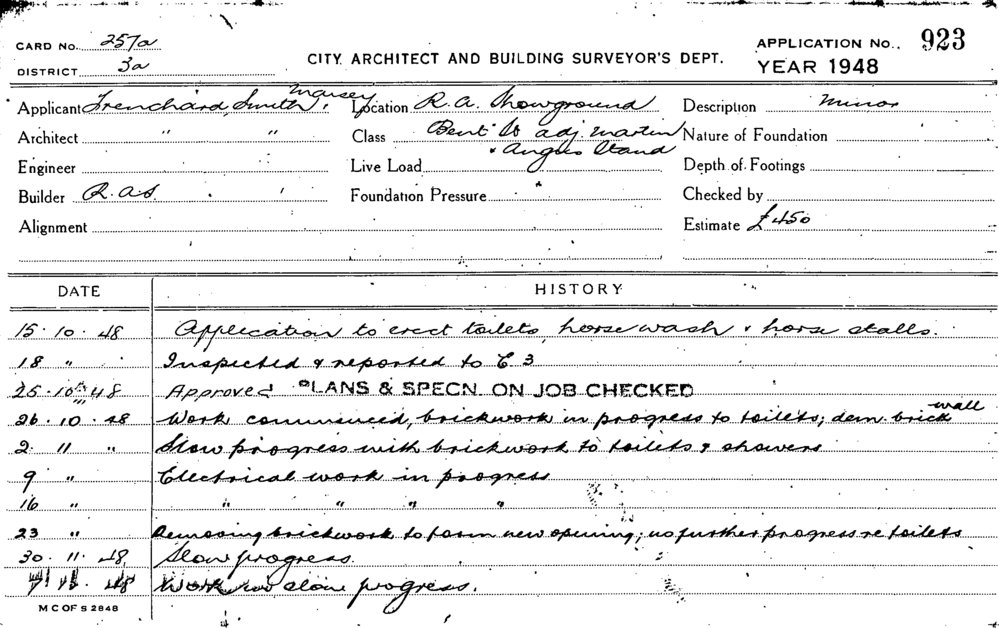 CARD No. 257a
DISTRICT 3a
CITY ARCHITECT AND BUILDING SURVEYOR'S DEPT.
APPLICATION No. 923
YEAR 1948
Applicant Trenchard, Smith, Maisey Location R.A. Showground Description Minor
Architect " " Class Bent St adj. Martin & Angus Stand Nature of Foundation
Engineer Live Load Depth of Footings
Builder R.A.S. Foundation Pressure Checked by
Alignment Estimate £450
DATE HISTORY
15.10.48 Application to erect toilets, horse wash & horse stalls.
18 " Inspected & reported to C 3
25.10.48 Approved PLANS & SPECN. ON JOB CHECKED
26.10.48 Work commenced, brickwork in progress to toilets; dem. brick wall
2 11 " Slow progress with brickwork to toilets & showers
9 " Electrical work in progress
16 " " " " "
23 " Removing brickwork to form new opening; no further progress re toilets
30.11.48 Slow progress.
48 Work slow progress.
M C OF S 2848